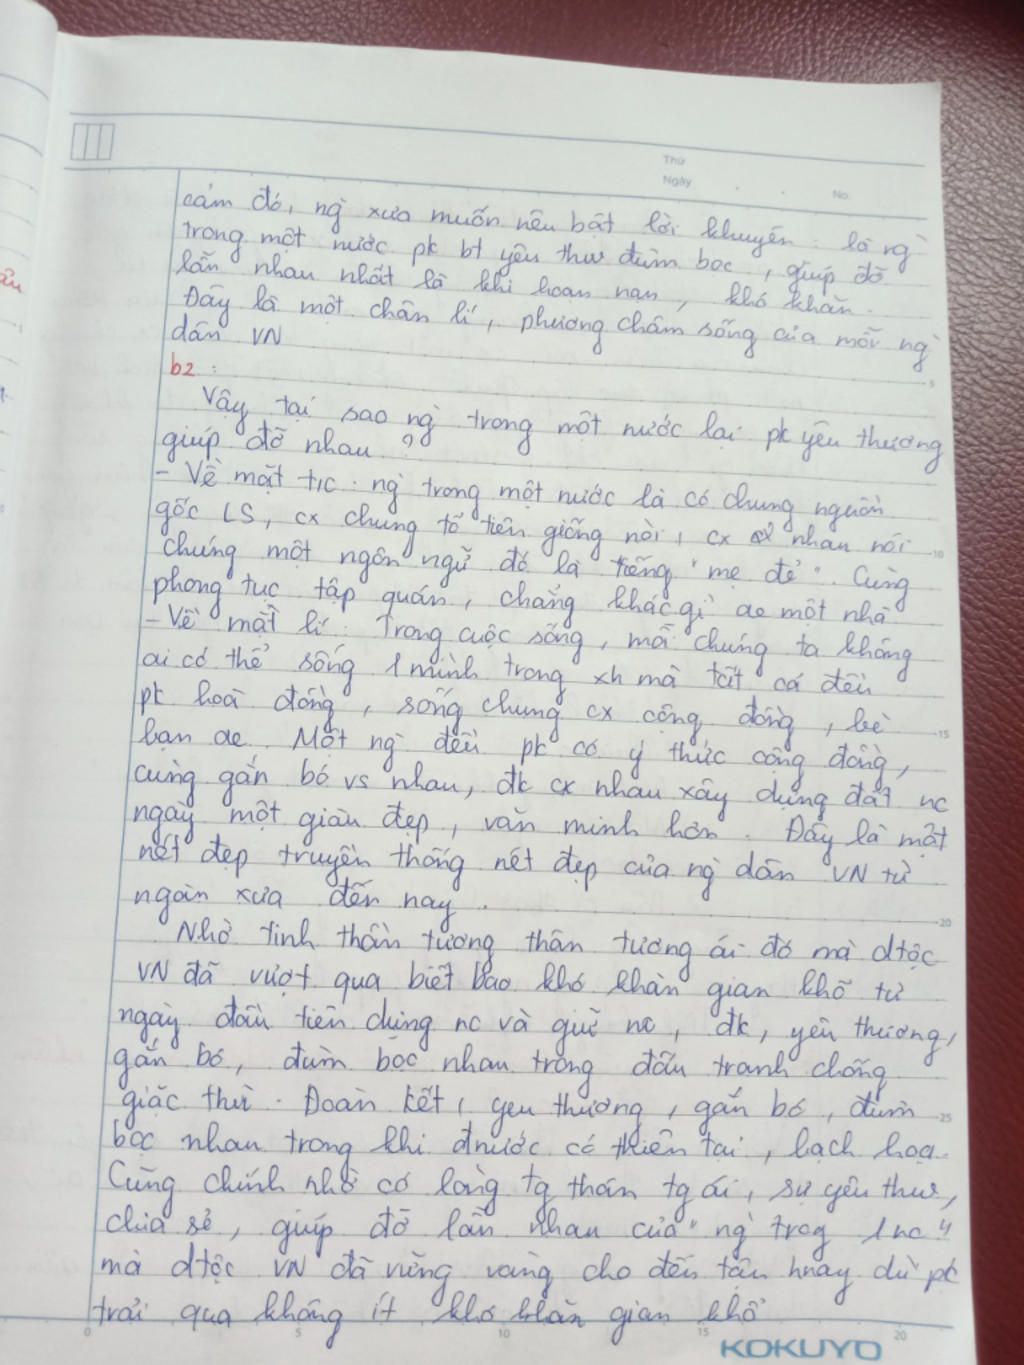 Thứ
Ngày
No.
cảm đó, ng` xưa muốn nêu bật lời khuyên: là ng`
trong một nước pk bt yêu thw đùm bọc, giúp đỡ
lẫn nhau nhất là khi hoạn nạn, khó khăn.
Đây là một chân lí, phương châm sống của mỗi ng`
dân VN
b2:
Vậy tại sao ng` trong một nước lại pk yêu thương
giúp đỡ nhau?
- Về mặt t/c: ng` trong một nước là có chung nguồn
gốc LS, cx chung tổ tiên giống nòi, cx nhau nói
chung một ngôn ngữ đó là tiếng "mẹ đẻ". Cùng
phong tục tập quán, chẳng khác gì ae một nhà.
- Về mặt lí: Trong cuộc sống, mỗi chúng ta không
ai có thể sống 1 mình trong xh mà tất cả đều
pk hoà đồng, sống chung cx cộng đồng, bè
bạn ae. Một ng` đều pk có ý thức cộng đồng,
cùng gắn bó vs nhau, đk cx nhau xây dựng đất nc
ngày một giàu đẹp, văn minh hơn. Đây là một
nét đẹp truyền thống nét đẹp của ng` dân VN từ
ngàn xưa đến nay.
Nhờ tinh thần tương thân tương ái đó mà dtộc
VN đã vượt qua biết bao khó khăn gian khổ từ
ngày đầu tiên dựng nc và giữ nc, đk, yêu thương,
gắn bó, đùm bọc nhau trong đấu tranh chống
giặc thù. Đoàn kết, yêu thương, gắn bó, đùm
bọc nhau trong khi đnước có thiên tai, hạch hoạ.
Cũng chính nhờ có lòng tg thân tg ái, sự yêu thw,
chia sẻ, giúp đỡ lẫn nhau của "ng` trog 1 nc"
mà dtộc VN đã vững vàng cho đến tận hnay dù pk
trải qua không ít khó khăn gian khổ
KOKUYO